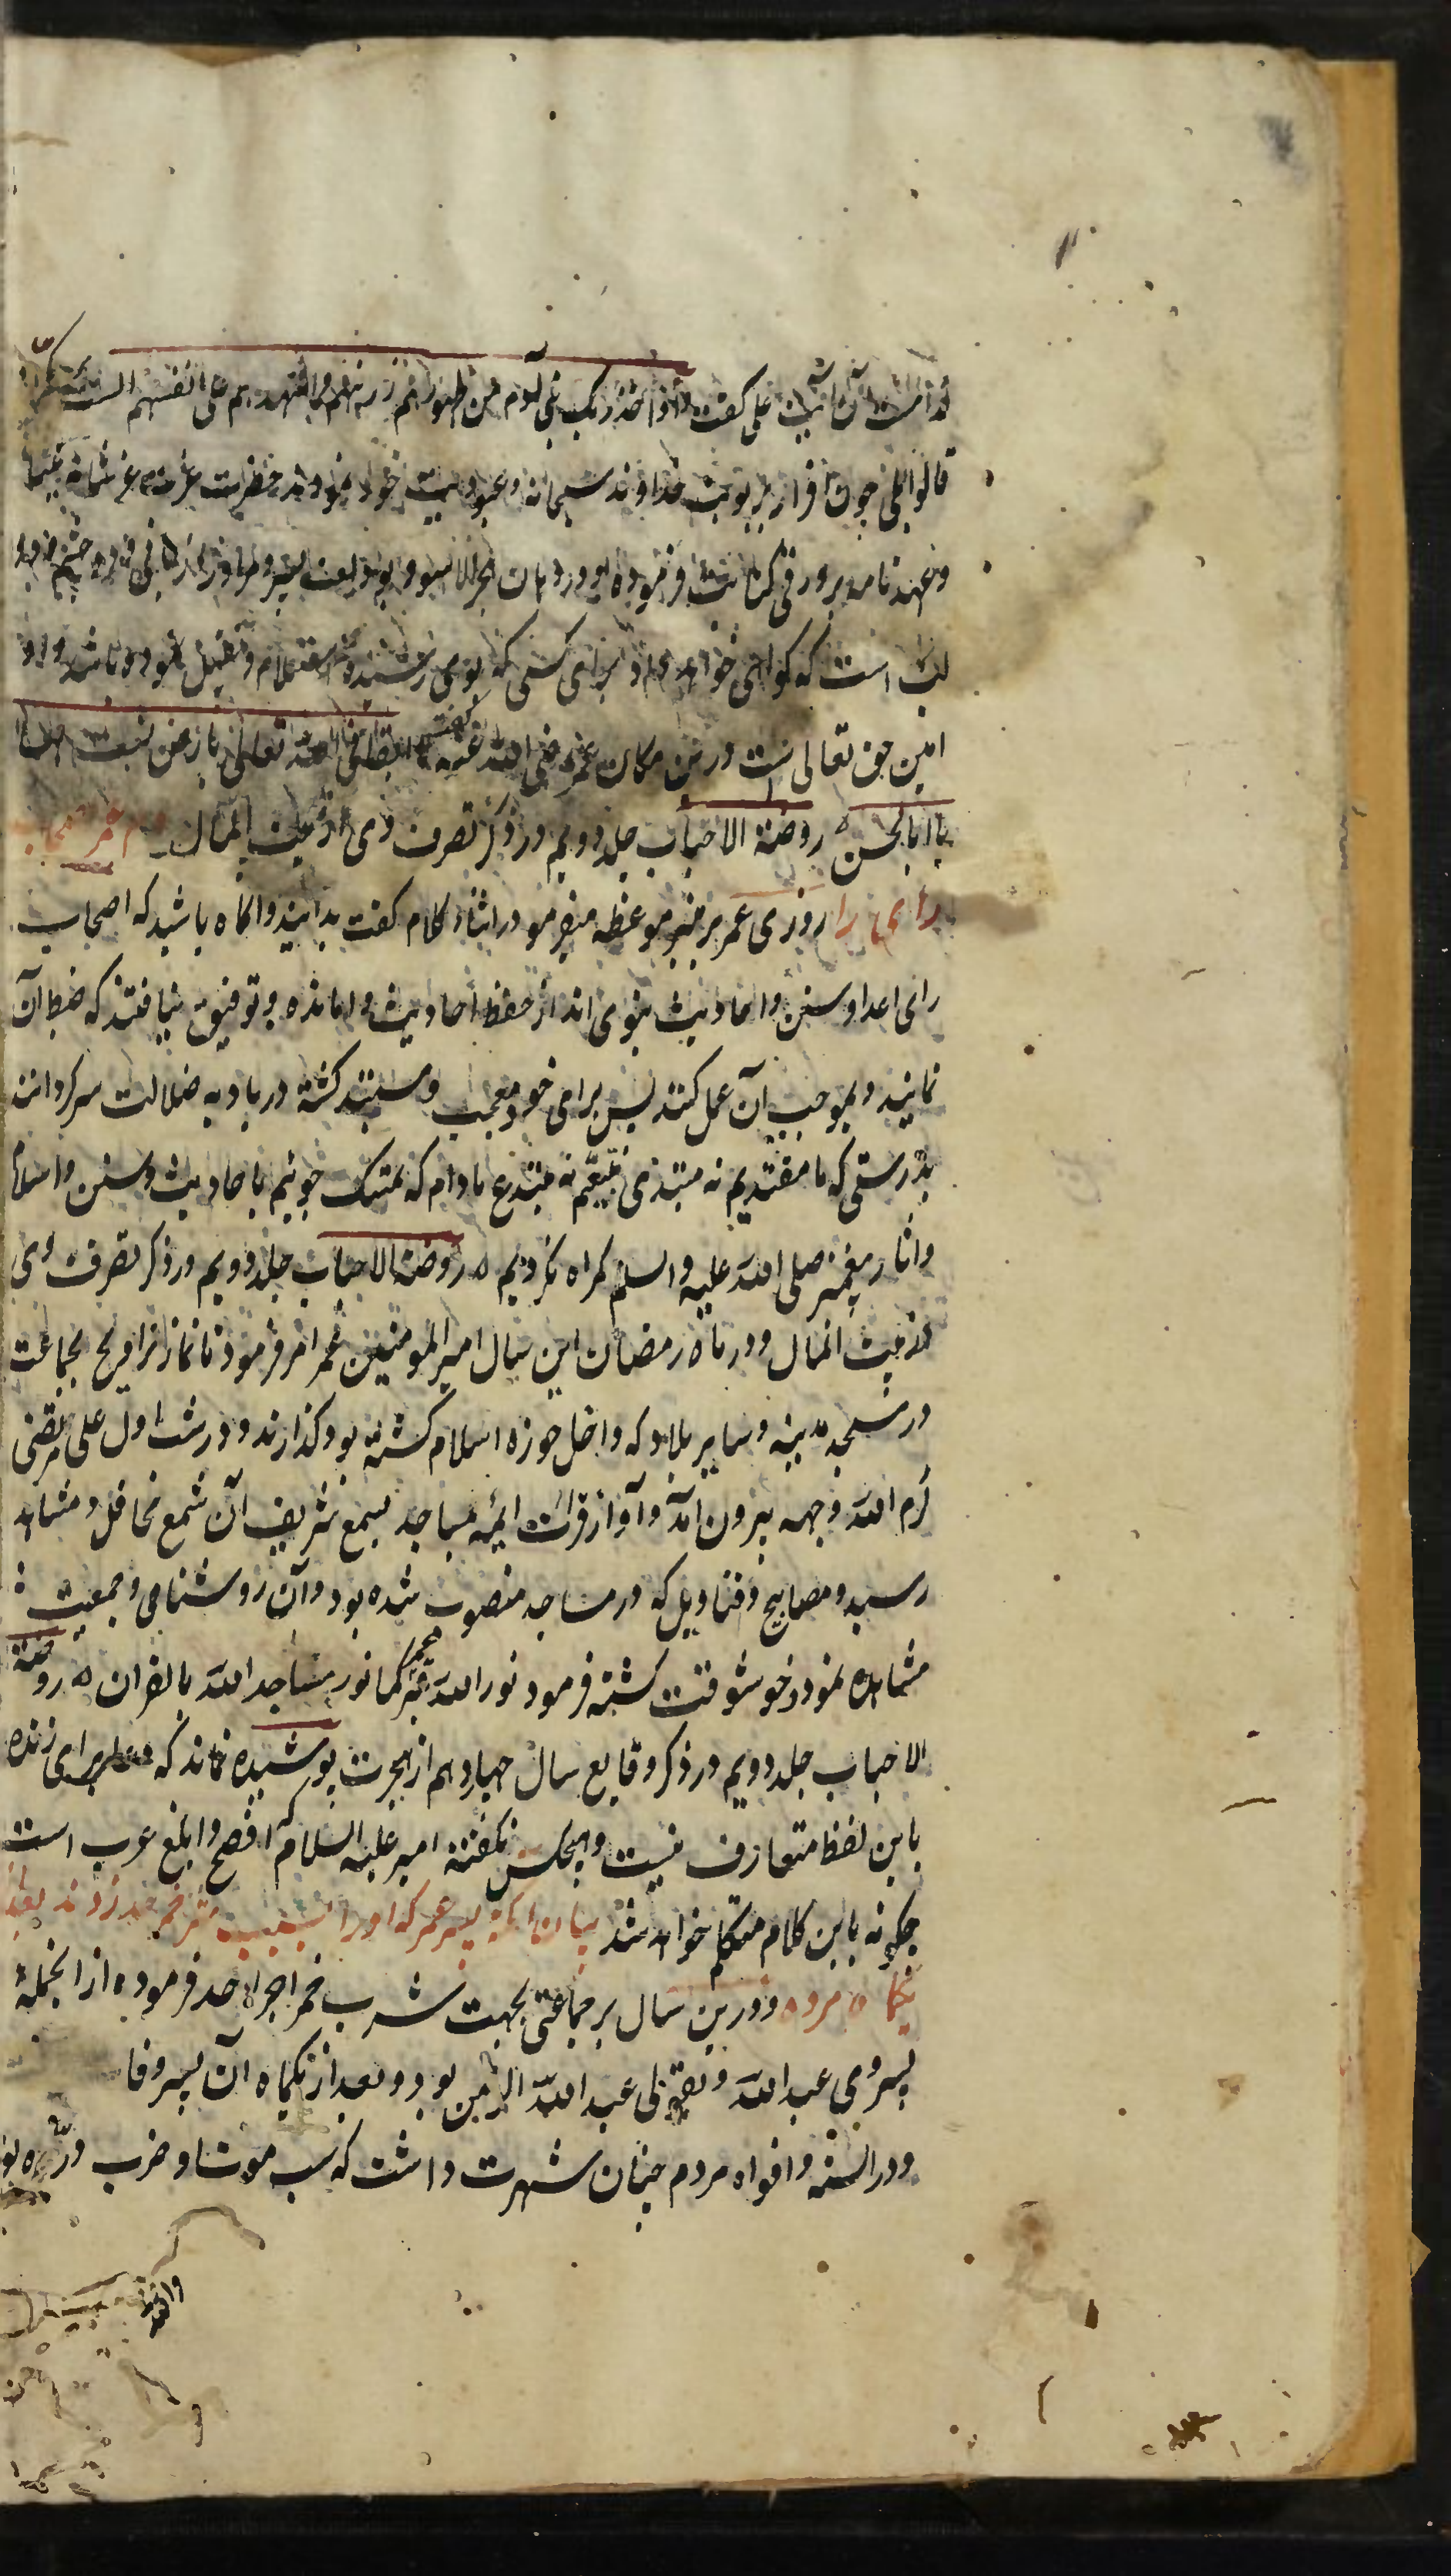 کدامست آن آیت علی گفت و اذا اخذ ربک من بنی آدم من ظهورهم ذریتهم و اشهدهم علی انفسهم الست بربکم
قالوا بلی چون اقرار بربوبیت خداوند سبحانه و عبودیت خود نمودند حضرت عزت عز شانه میثاق
و عهدنامه بر ورقی کتابت فرموده و در دهان حجر الاسود بودیعت سپرد و او را زبانی و دو چشم و دو
لب است که گواهی خواهد داد برای کسی که بوی رسیده و استلام و تقبیل نموده باشد و او
امین حق تعالی است درین مکان عمر رضی الله عنه گفت ابقانی الله تعالی بارض لست بها
یا ابا الحسن ۵ روضة الاحباب جلد دویم در ذکر تصرف وی از بیت المال
رای را روزی عمر بر منبر موعظه میفرمود در اثناء کلام گفت بدانید و اگاه باشید که اصحاب
رای اعداء سنن و احادیث نبوی اند از حفظ احادیث وامانده و توفیق نیافتند که ضبط آن
نمایند و بموجب آن عمل کنند پس برای خود معجب و مستبد کشته در بادیه ضلالت سرکردانند
بدرستی که ما مقتدیم نه مبتدی متبعیم نه مبتدع مادام که تمسک جوئیم باحادیث و سنن و اسلام
و اثار پیغمبر صلی الله علیه و اسلم کمراه نکردیم ۵ روضة الاحباب جلد دویم در ذکر تصرف وی
از بیت المال و در ماه رمضان این سال امیر المومنین عمر امر فرمود تا نماز تراویح بجماعت
در مسجد مدینه و سایر بلاد که داخل حوزه اسلام کشته بود کذارند و در شب اول علی مرتضی
کرم الله وجهه بیرون آمد و آواز قرات ایمه مساجد بسمع شریف آن شمع محافل و مشاهد
رسید و مصابیح و قنادیل که در مساجد منصوب شده بود و آن روشنایی و جمعیت
مشاهده نمود و خوشوقت کشته فرمود نور الله قبر عمر کما نور مساجد الله بالقران ۵ روضة
الاحباب جلد دویم در ذکر وقایع سال چهاردهم از هجرت پوشیده نماند که دعا برای زنده
باین لفظ متعارف نیست و هیچکس نگفته امیر علیه السلام که افصح و ابلغ عرب است
چگونه باین کلام متکلم خواهد شد بیان انکه پسر عمر که او را بسبب شرب خمر حد زدند بعد از
یکماه مرده و درین سال بر جماعتی بجهت شرب خمر اجراء حد فرموده از انجمله
پسر وی عبد الله و بقولی عبد الله الرحمن بود و بعد از یکماه آن پسر وفا
و در السنه و افواه مردم چنان شهرت داشت که سبب موت او ضرب دره بو